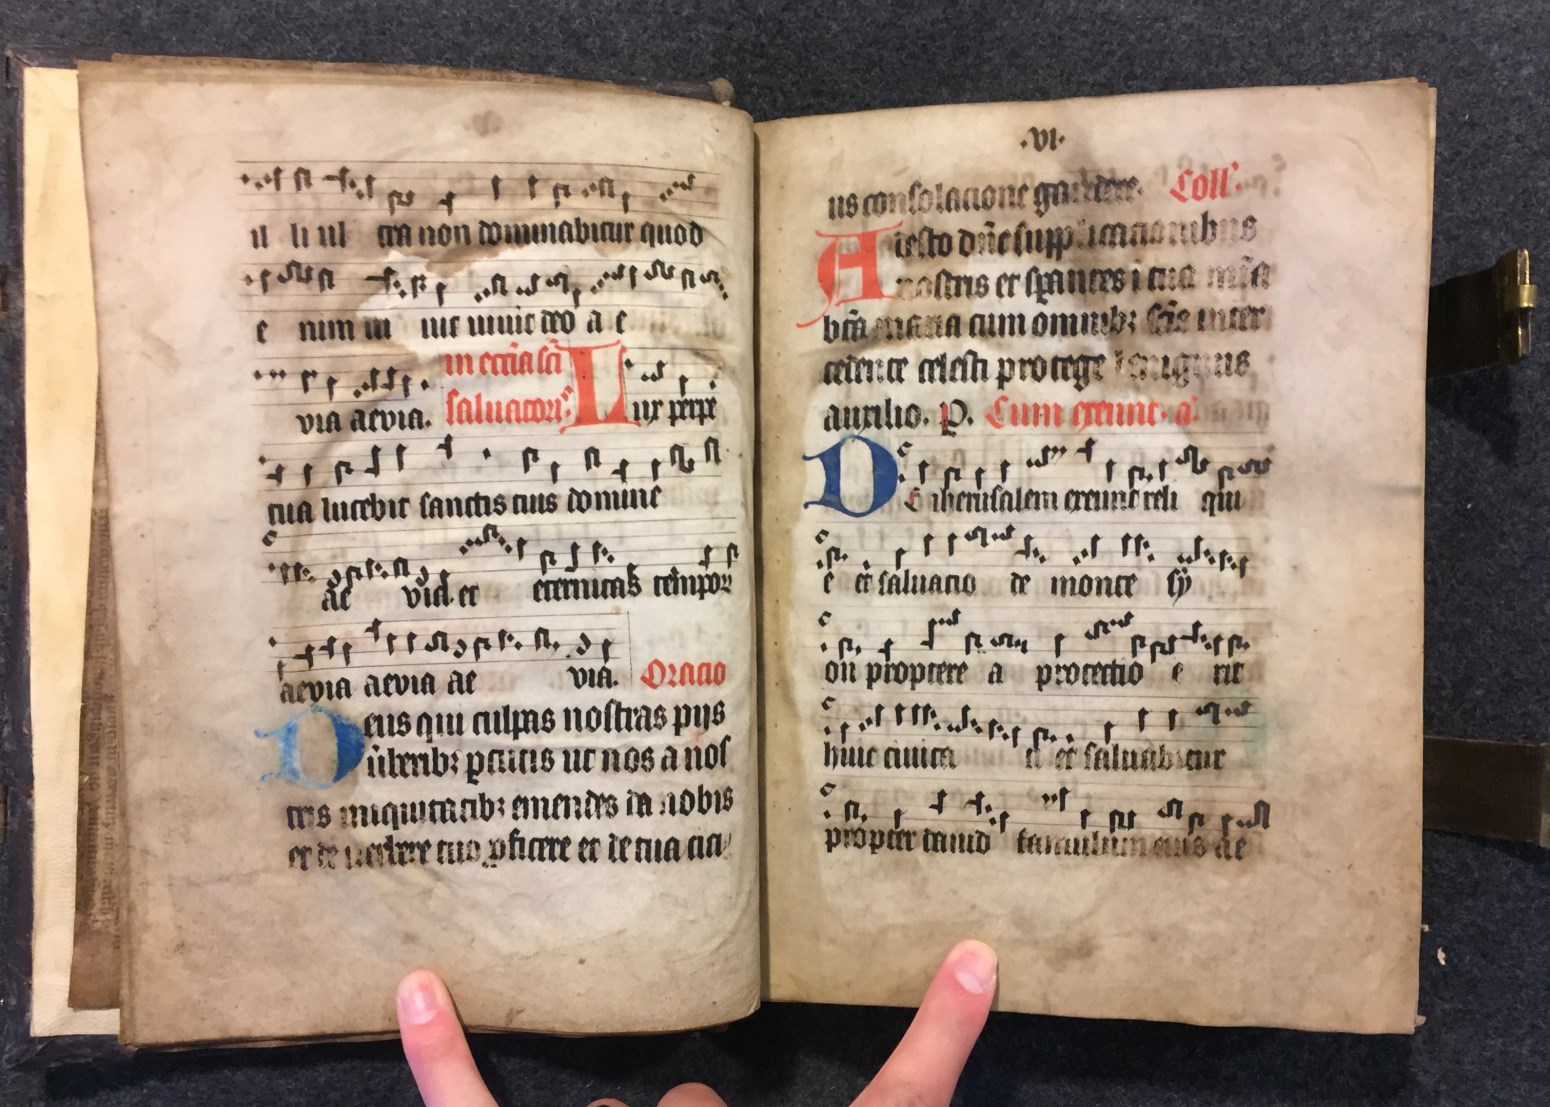 il li ul tra non dominabitur quod
e nim in uit uiuit deo a e
via aevia. in eccia sci
saluatoris Lux perpe
tua lucebit sanctis tuis domine
ae via. et eternitas tempor
aevia aevia ae via. Oracio
Deus qui culpas nostras pijs
ūberib; ꝑcutis ut nos a nos
tris iniquitatib; emendes da nobis
et de uerbere tuo ꝓficere et de tua cita
.VI.
us consolacione gaudere. Coll'.
Adesto dn̄e supplicacionibus
nostris et sꝑantes i tua mīa
bt̄a maria cum omnib; sc̄is inter
cedente celesti protege benignus
auxilio. P. Cum exeunt. a.
De iherusalem exeunt reli qui
e et saluacio de monte sy
on propterea protectio e rit
huic ciuita ti et saluabitur
propter dauid famulum eius ae